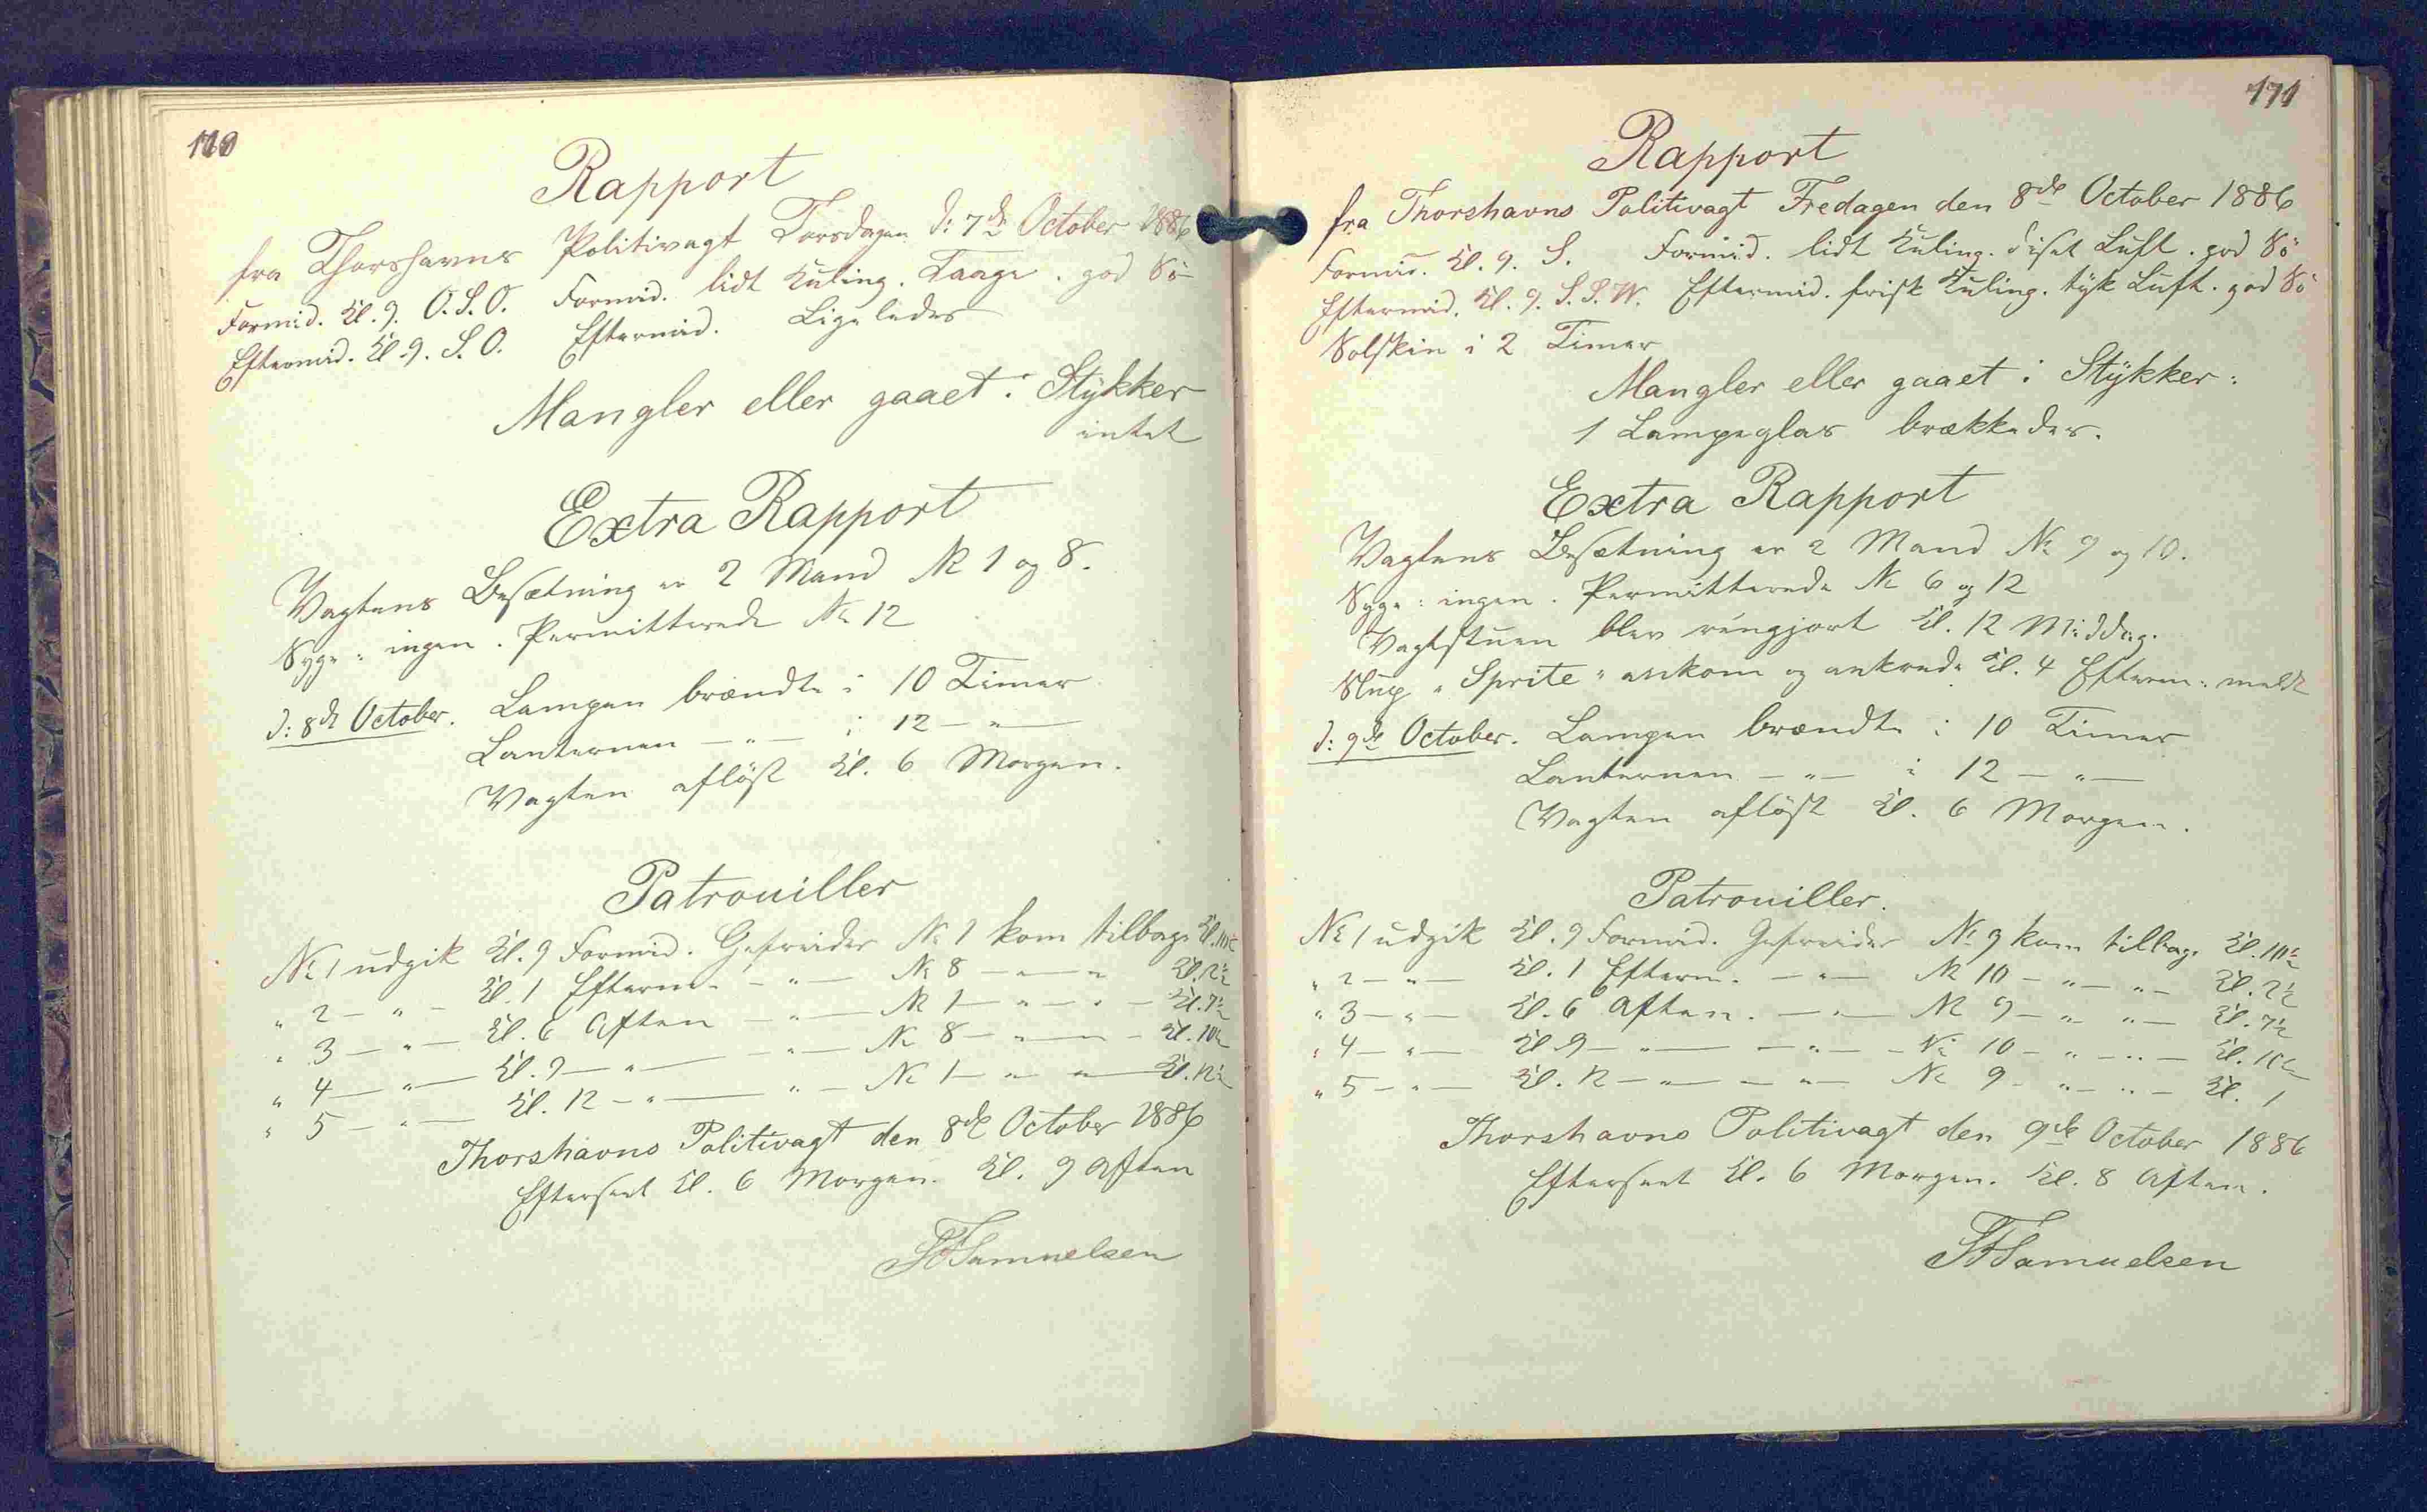 Rapport
fra Thorshavns Politivagt Torsdagen d: 7de October 1886
Formid. Kl. 9. O.S.O. Formid. lidt Kuling. Taage. god Sö
Eftermid. Kl. 9. S.O. Eftermid. Ligeledes
Mangler eller gaaet i Stykker
intet
Extra Rapport
Vagtens Besætning er 2 Mand № 1 og 8.
Syge: ingen. Permitterede № 12
d: 8de October. Lampen brændte i 10 Timer
Lanternen — " — i 12 — " —
Vagten aflöst Kl. 6 Morgen.
Patrouiller
№ 1 udgik Kl. 9 Formid. Gefreider № 1 kom tilbage Kl. 10½
" 2 — " — Kl. 1 Efterm. — " — № 8 — " — " Kl. 2½
" 3 — " — Kl. 6 Aften — " — № 1 — " — " — Kl. 7½
" 4 — " — Kl. 9 — " — — " — № 8 — " — " — Kl. 10½
" 5 — " — Kl. 12 — " — " — № 1 — " — " — Kl. 12½
Thorshavns Politivagt den 8de October 1886
Efterseet Kl. 6 Morgen. Kl. 9 Aften
Samuelsen
171
Rapport
fra Thorshavns Politivagt Fredagen den 8de October 1886
Formid. Kl. 9. S. Formid. lidt Kuling. diset Luft. god Sö
Eftermid. Kl. 9. S.S.W. Eftermid. frisk Kuling. tyk Luft. god Sö
Solskin i 2 Timer
Mangler eller gaaet i Stykker:
1 Lampeglas brækkedes.
Extra Rapport
Vagtens Besætning er 2 Mand № 9 og 10.
Syge: ingen. Permitterede № 6 og 12
Vagtstuen blev rengjort Kl. 12 Middag.
Slup "Sprite" ankom og ankrede Kl. 4 Efterm: meldt
d: 9de October. Lampen brændte i 10 Timer
Lanternen — " — i 12 — " —
Vagten aflöst Kl. 6 Morgen.
Patrouiller.
№ 1 udgik Kl. 9 Formid. Gefreider № 9 kom tilbage Kl. 10½
" 2 — " — Kl. 1 Efterm. — " — № 10 — " — " — Kl. 2½
" 3 — " — Kl. 6 Aften. — " — № 9 — " — " — Kl. 7½
" 4 — " — Kl. 9 — " — — " — № 10 — " — " — Kl. 10½
" 5 — " — Kl. 12 — " — — " — № 9 — " — " — Kl. 1
Thorshavns Politivagt den 9de October 1886
Efterseet Kl. 6 Morgen. Kl. 8 Aften.
Samuelsen